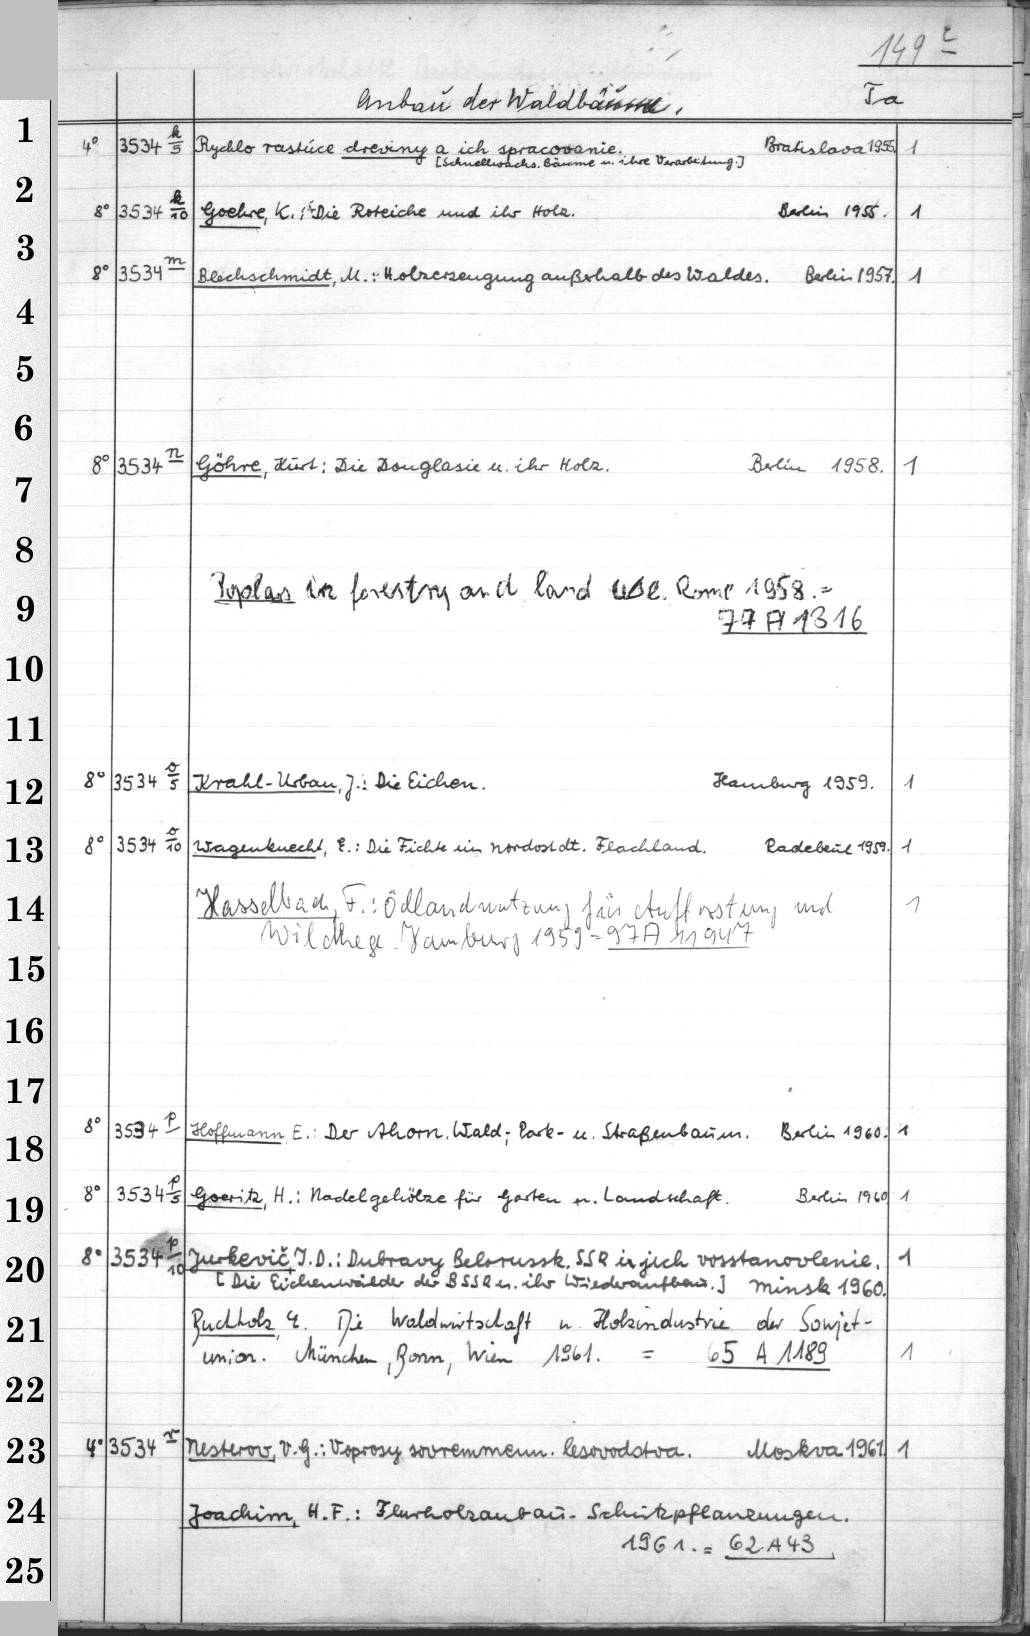 149 c
Anbau der Waldbäume. Ta
1
4° 3534 k/5 Rychlo rastúce dreviny a ich spracovanie. Bratislava 1955 1
[Schnellwachs. Bäume u. ihre Verarbeitung.]
2
8° 3534 k/10 Goehre, K.: Die Roteiche und ihr Holz. Berlin 1955. 1
3
8° 3534 m Blechschmidt, M.: Holzerzeugung außerhalb des Waldes. Berlin 1957. 1
4
5
6
8° 3534 n Göhre, Kurt: Die Douglasie u. ihr Holz. Berlin 1958. 1
7
8
Poplars in forestry and land use. Rome 1958. =
9
77 A 1316
10
11
8° 3534 o/5 Krahl-Urban, J.: Die Eichen. Hamburg 1959. 1
12
8° 3534 o/10 Wagenknecht, E.: Die Fichte im nordostdt. Flachland. Radebeul 1959. 1
13
14 Hasselbach, F.: Ödlandnutzung für Aufforstung und 1
Wildhege. Hamburg 1959 = 97 A 11947
15
16
17
8° 3534 p Hoffmann, E.: Der Ahorn. Wald-, Park- u. Straßenbaum. Berlin 1960. 1
18
8° 3534 p/5 Goeritz, H.: Nadelgehölze für Garten u. Landschaft. Berlin 1960 1
19
8° 3534 p/10 Jurkevič, I.D.: Dubravy Belorussk. SSR i ich vosstanovlenie. 1
20
[Die Eichenwälder der BSSR u. ihr Wiederaufbau.] Minsk 1960.
21 Buchholz, E. Die Waldwirtschaft u. Holzindustrie der Sowjet-
union. München, Bonn, Wien 1961. = 65 A 1189 1
22
23 4° 3534 r Nesterov, V.G.: Voprosy sovremenn. lesovodstva. Moskva 1961. 1
24 Joachim, H.F.: Flurholzanbau. Schutzpflanzungen.
1961. = 62 A 43
25